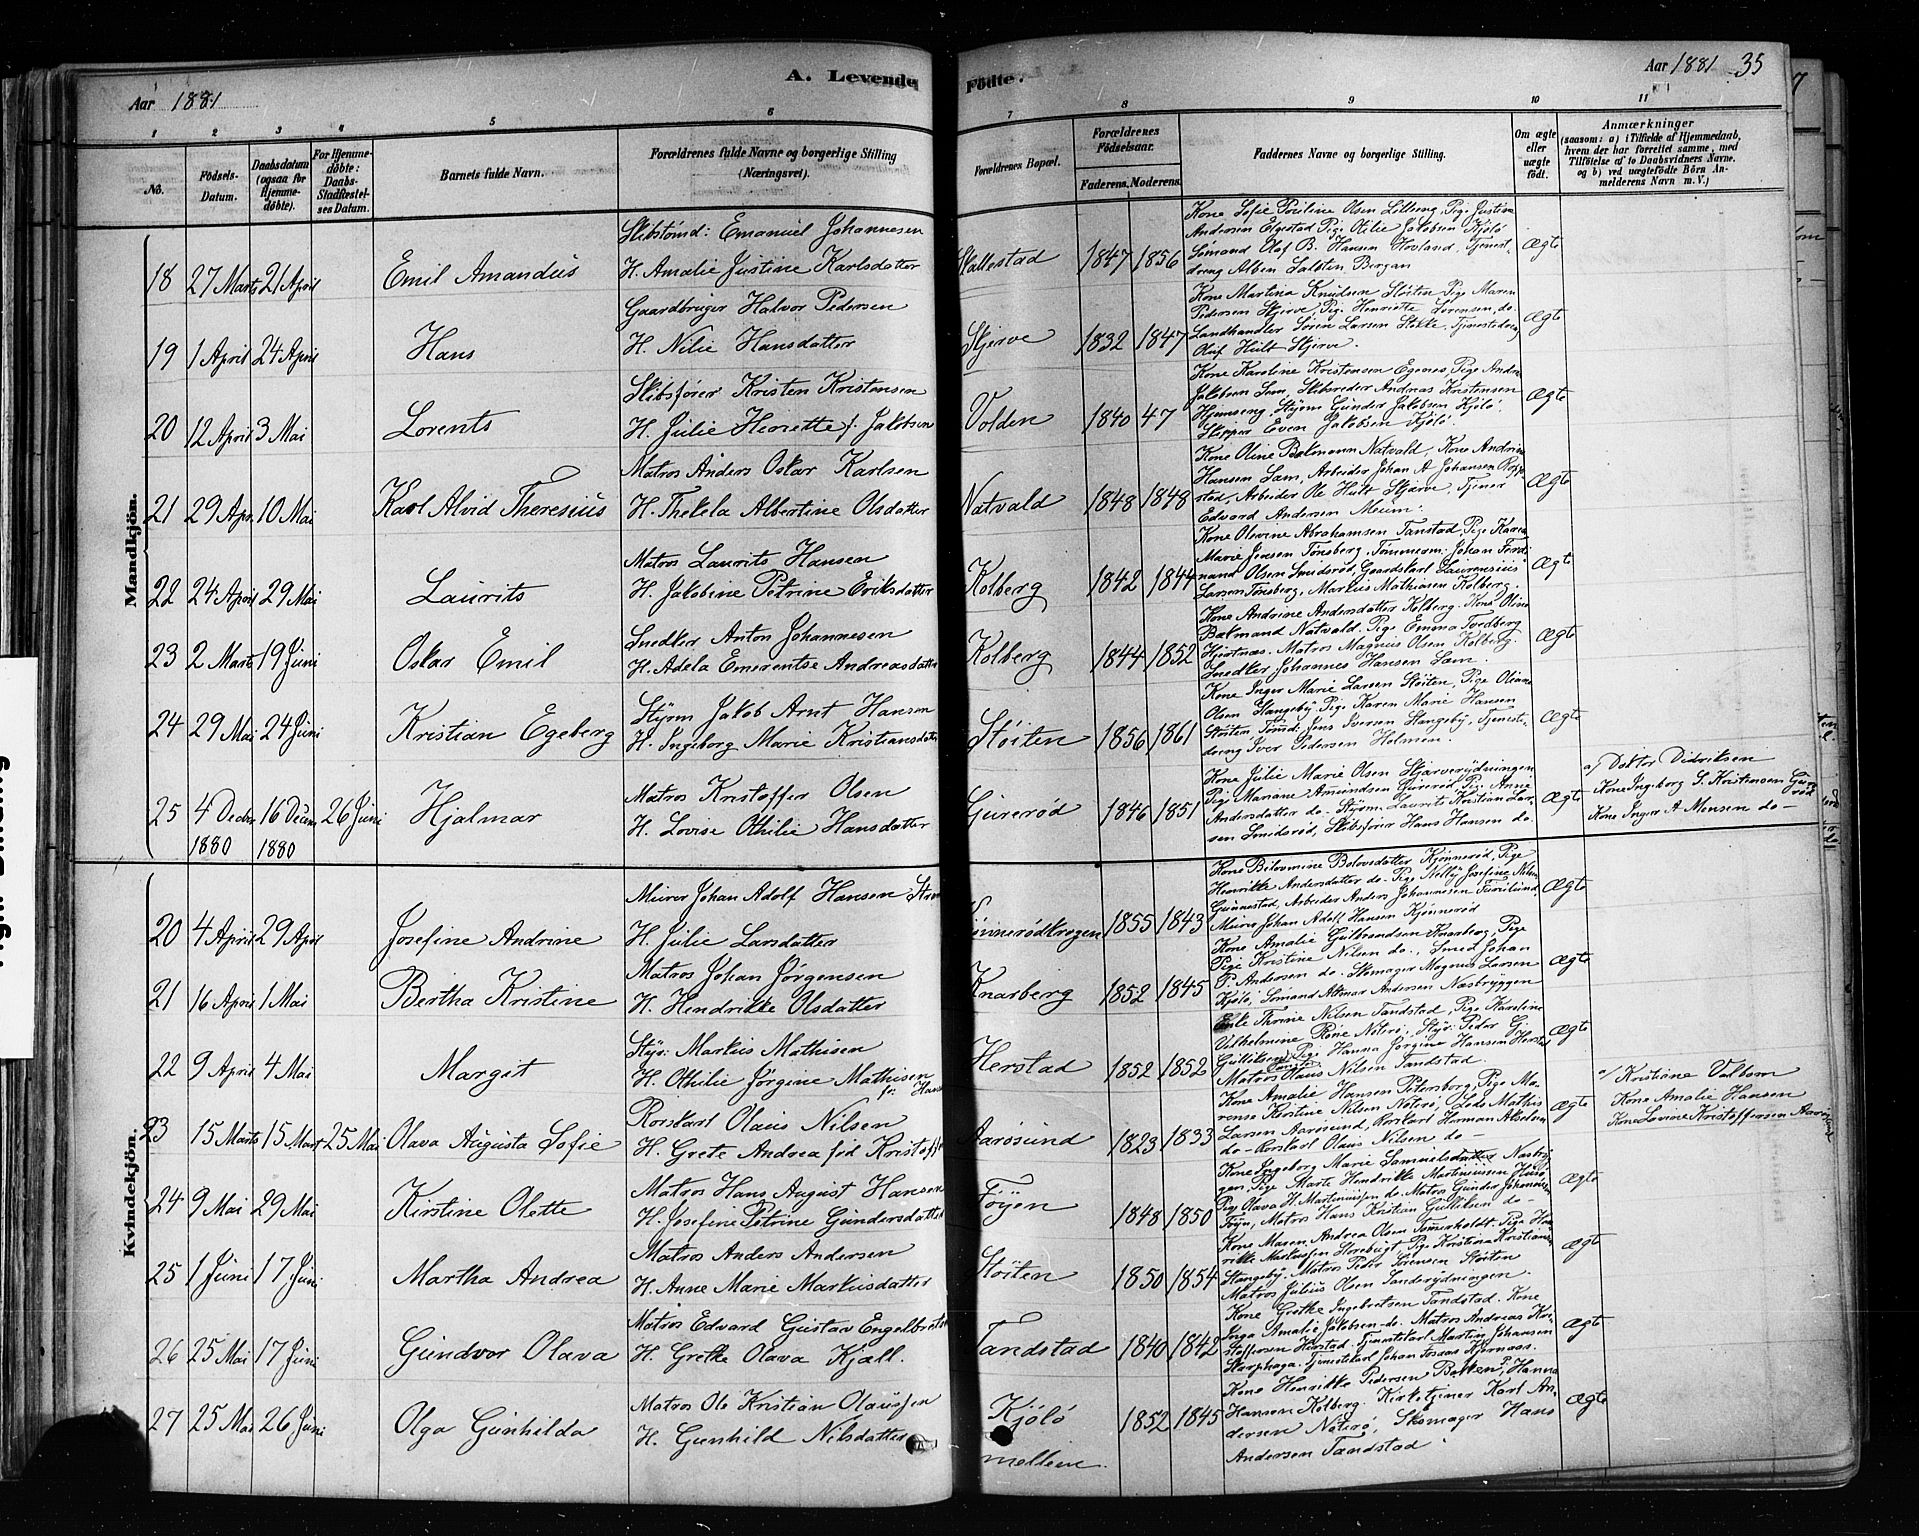 Aar 1881
A. Levende
Födte.
Aar 1881 35
1 2 3 4 5 6
7 8 9 10 11
No.
Födsels-Datum.
Daabsdatum (ogsaa for Hjemme-døbte).
For Hjemme-döbte: Daabs-Stadfæstel-ses Datum.
Barnets fulde Navn.
Forældrenes fulde Navne og borgerlige Stilling (Næringsvei).
Forældrenes Bopæl.
Forældrenes Födselsaar.
Faderens. Moderens.
Faddernes Navne og borgerlige Stilling.
Om ægte eller uægte födt.
Anmærkninger
(saasom: a) i Tilfælde af Hjemmedaab, hvem der har forrettet samme, med Tilföielse af to Daabsvidners Navne. og b) ved uægtefödte Börn An-melderens Navn m. V.)
Mandkjön.
18 27 Marts 21 April Emil Amandus
Skibstømd: Emanuel Johannesen
H. Amalie Justine Karlsdatter
Skallestad 1847 1856
Kone Sofie Pouline Olsen Lilleeng, Pige Justine
Andersen Elgestad Pige Otilie Jakobsen Kjölö
Sømand Olaf B. Hansen Hovland, Tjenest-
dreng Albin Salsten Bergan
Ægte
19 1 April 24 April Hans
Gaardbruger Halvor Pedersen
H. Nilie Hansdatter
Skjerve 1832 1847
Kone Martina Knudsen Støiten Pige Maren
Pedersen Skjerve, Pige Henriette Sørensen, do.
Landhandler Sörin Larsen Stokke, Tjenestedreng
Oluf Hult Skjerve.
Ægte
20 12 April 3 Mai Lorents
Skibsfører Kristen Kristensen
H. Julie Henriette f. Jakobsen
Volden 1840 47
Kone Karoline Kristensen Egenes, Pige Andrea
Jakobsen Sem, Skibsreder Andreas Kristensen
Hjemseng, Styrm Gunder Jakobsen Kjölö,
Skipper Even Jakobsen Kjölö.
Ægte
21 29 Apr. 10 Mai Karl Alvid Theresius
Matros Anders Oskar Karlsen
H. Thekela Albertine Olsdatter
Natvald 1848 1848
Kone Oline Bakmann Natvald, Kone Andrine
Hansen Sam, Arbeider Johan A Johansen
stad, Arbeider Ole Hult Skjerve, Tjener
Edvard Andersen Meum.
Ægte
22 24 April 29 Mai Laurits
Matros Laurits Hansen
H. Jakobine Petrine Eriksdatter
Kolberg 1842 1844
Kone Olevine Abrahamsen Tanstad, Pige Karen
Marie Jensen Tønsberg, Tømmerm: Johan Ferdi
nand Olsen Smidsrød, Gaardskarl Laurensius
Larsen Tønsberg, Markus Mathiasen Kolberg.
Ægte
23 2 Marts 19 Juni Oskar Emil
Snedker Anton Johannesen
H. Adela Emerentse Andreasdatter
Kolberg 1844 1852
Kone Andrine Andersdatter Kolberg. Kone Oline
Bakmand Natvald, Pige Emma Tordberg
Hjertnæs. Matros Magnus Olsen Kolberg.
Snedker Johannes Hansen Sam.
Ægte
24 29 Mai 24 Juni Kristian Egeberg
Styrm Jakob Arnt Hansen
H. Ingeborg Marie Kristiansdatter
Støiten 1856 1861
Kone Inger Marie Larsen Støiten, Pige Oleane
Olsen Stangeby Pige Karen Marie Hansen
Støiten, Tømd. Jens Iversen Stangeby, Tjenest-
dreng Iver Pedersen Holmen.
Ægte
25 4 Decbr 1880 16 Decem 1880 26 Juni Hjalmar
Matros Kristoffer Olsen
H. Lovise Othilie Hansdatter
Gurerød 1846 1851
Kone Julie Marie Olsen Skjærverydningen
Pige Mariane Amundsen Gurerød, Pig. Anne
Andersdatter do. Styrm. Laurits Kristian Lar-
sen Smidsrød, Skibsfører Hans Hansen do.
Ægte
a) Doktor Didriksen
Kone Ingeborg S. Kristensen Gurerød
Kone Inger A Monsen do
Kvindekjön.
20 4 April 29 April Josefine Andrine
Murer Johan Adolf Hansen
H. Julie Larsdatter
1855 1843
Kone Bolevmine Bolovsdatter Kjønnerød, Pige
Henrikke Andersdatter do. Pige Nelly Josefine Nilsen
Gunnestad, Arbeider Anders Johannesen Furulund
Murer Johan Adolf Hansen Kjønnerød
Ægte
21 16 April 1 Mai Bertha Kristine
Matros Johan Jørgensen
H. Hendrikke Olsdatter
Knarberg 1852 1845
Kone Amalie Gulbrandsen Knarberg, Pige
Pige Kristine Nilsen do., Smed Johan
P. Andersen do. Skomager Magnus Larsen
Kjölö, Sømand Altmar Andersen Næsbryggen
Ægte
22 9 April 4 Mai Margit
Styr: Markus Mathisen
H. Othilie Jørgine Mathisen
Herstad 1852 1852
Enke Thrine Nilsen Tandstad, Pige Karoline
Vilhelmine Røne Nøterø, Styr: Peder G.
Gulliksen, Pige Hanna Jørgine Hansen Herstad
Matros Claus Nilsen Tandstad.
Ægte
23 15 Marts 15 Marts 25 Mai Olava Augusta Sofie
Rorskarl Olaus Nilsen
H. Grete Andrea fød Kristoff
Aarøsund 1823 1833
Kone Amalie Hansen Petersborg, Pige Ma-
rense Kristine Nilsen Nøterø, Lods Mathis
Larsen Aarøsund, Rorskarl Herman Akselsen
do- Rorskarl Olaus Nilsen do-
Ægte
a) Kristiane Valbom
Kone Amalie Hansen
Kone Lovine Kristoffersen
24 9 Mai 29 Mai Kirstine Olette
Matros Hans August Hansen
H. Josefine Petrine Gundersdatter
Föyen 1848 1850
Kone Ingeborg Marie Samuelsdatter Nesbryg
gen Pige Marte Hendrikke Martiniussen Husø
Pig. Olava H. Martinussen do. Matros Gunder Johannesen
Föyn, Matros Hans Kristian Gulliksen do-
Ægte
25 1 Juni 17 Juni Martha Andrea
Matros Anders Andersen
H. Anne Marie Markusdatter
Støiten 1850 1854
Kone Maren Andrea Olsen Tømmerholdt. Pige Hen
rikke Markussen Storebugt, Pige Kristina Kristians
Stangeby. Matros Peder Sørensen Støiten
Matros Julius Olsen Sanderydningen.
Ægte
26 25 Mai 17 Juni Gundvor Olava
Matros Edvard Gustav Engelbrets
H. Grethe Olava Kjæll.
Tandstad 1840 1842
Kone Grethe Ingebretsen Tandstad. Kone
Inga Amalie Jakobsen do. Matros Andreas Kri-
stoffersen Herstad. Tjenestekarl Martin Johansen
Skarphaga. Tjenestekarl Johan
Ægte
27 25 Mai 26 Juni Olga Gunhilda
Matros Ole Kristian Olaussen
H. Gunhild Nilsdatter
Kjölö mellem 1852 1845
Kone Henrikke Pedersen Bakken, Hanna
Hansen Kolberg. Kirketjener Karl An-
dersen Nøterø, Skomager Hans
Andersen Tandstad
Ægte